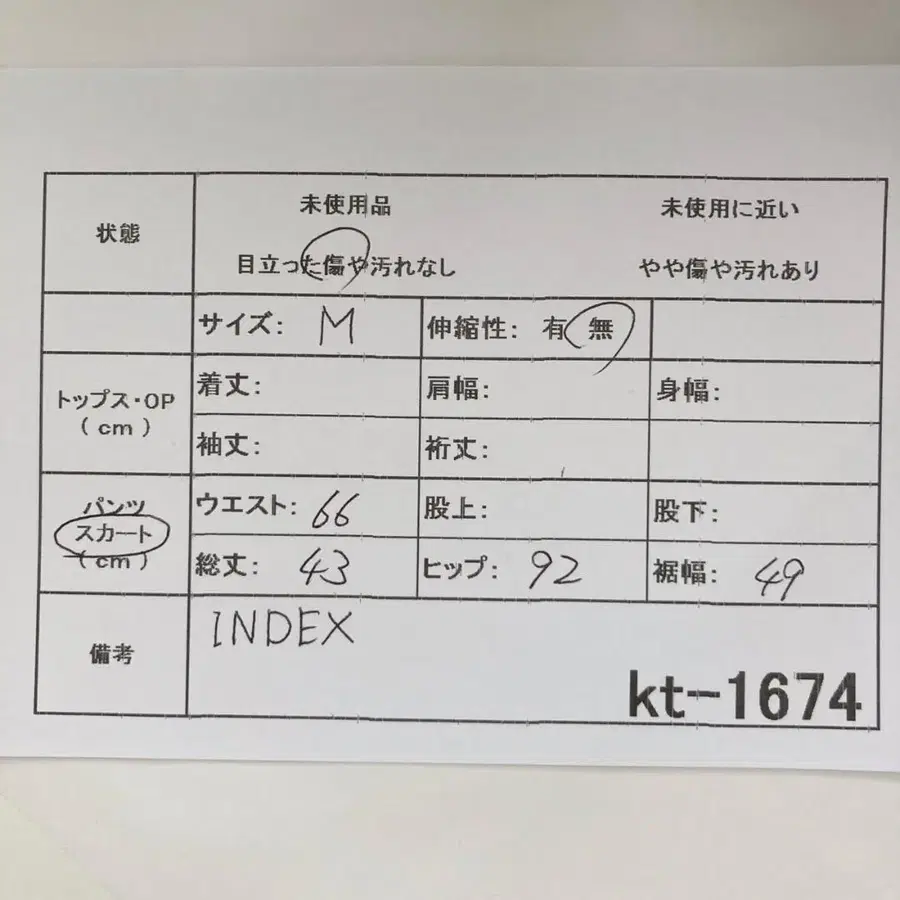 状態
未使用品 未使用に近い
目立った傷や汚れなし やや傷や汚れあり
サイズ: M 伸縮性: 有 無
トップス・OP
(cm)
着丈: 肩幅: 身幅:
袖丈: 裄丈:
パンツ
スカート
(cm)
ウエスト: 66 股上: 股下:
総丈: 43 ヒップ: 92 裾幅: 49
備考
INDEX
kt-1674